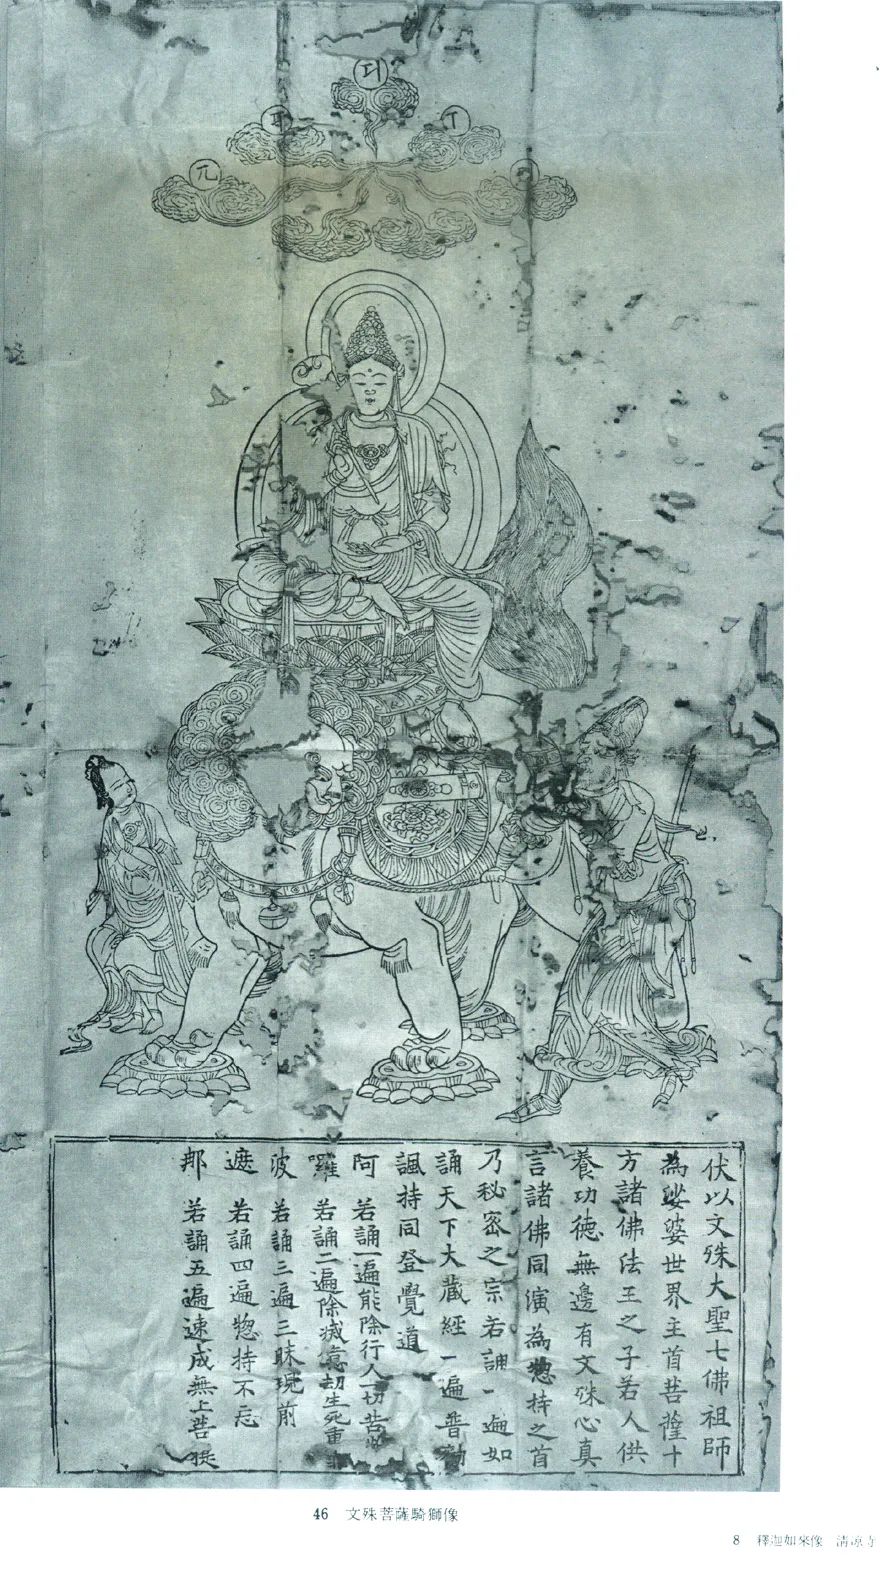 伏以文殊大聖七佛祖師
為娑婆世界主首菩薩十
方諸佛法王之子若人供
養功德無邊有文殊心真
言諸佛同演為惣持之首
乃祕密之宗若誦一遍如
誦天下大藏經一遍普勸
諷持同登覺道
阿 若誦一遍能除行人一切苦
囉 若誦二遍除滅億劫生死重罪
波 若誦三遍三昧現前
遮 若誦四遍惣持不忘
那 若誦五遍速成無上菩提
46 文殊菩薩騎獅像
8 釋迦如來像 清凉寺